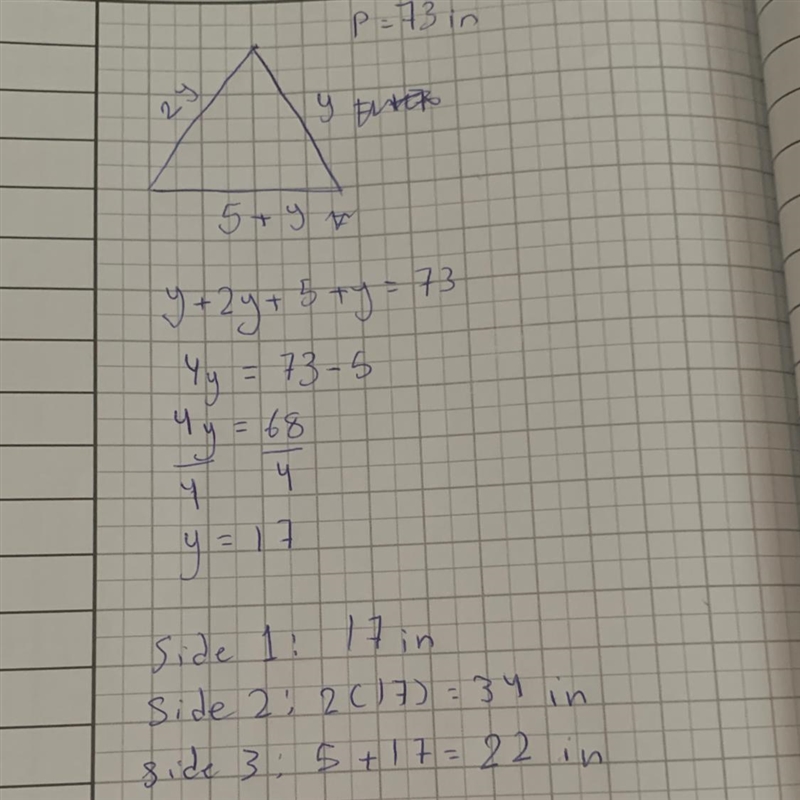 P = 73 in
2y
y
5 + y
y + 2y + 5 + y = 73
4y = 73 - 5
4y = 68
4 4
y = 17
Side 1 : 17 in
Side 2 : 2(17) = 34 in
Side 3 : 5 + 17 = 22 in